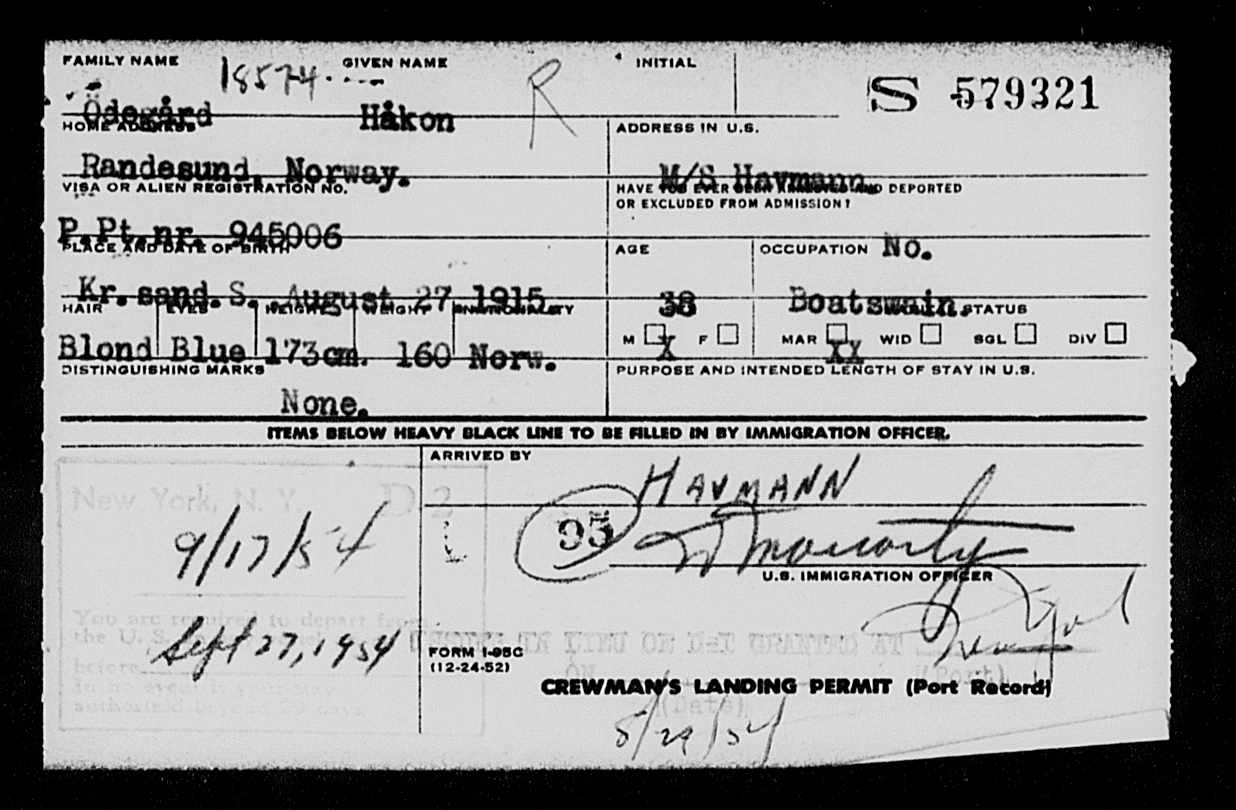 FAMILY NAME GIVEN NAME INITIAL
18574 R S 579321
Ödegård Håkon
HOME ADDRESS ADDRESS IN U.S.
Randesund, Norway. M/S Havmann.
VISA OR ALIEN REGISTRATION NO. HAVE YOU EVER BEEN ARRESTED AND DEPORTED
OR EXCLUDED FROM ADMISSION?
P.Pt.nr. 945006 No.
PLACE AND DATE OF BIRTH AGE OCCUPATION
Kr.sand.S. August 27 1915. 38 Boatswain.
HAIR EYES HEIGHT WEIGHT NATIONALITY STATUS
M X F MAR XX WID SGL DIV
Blond Blue 173cm. 160 Norw.
DISTINGUISHING MARKS PURPOSE AND INTENDED LENGTH OF STAY IN U.S.
None.
ITEMS BELOW HEAVY BLACK LINE TO BE FILLED IN BY IMMIGRATION OFFICER.
ARRIVED BY
HAVMANN
New York, N. Y. D 2
95
9/17/54
U.S. IMMIGRATION OFFICER
You are required to depart from
the U. S.
Sept 27, 1954
before
in no event is your stay
authorized beyond 29 days
ISSUED IN LIEU OF D-1 GRANTED AT
ON (Port)
(Date)
FORM I-95C
(12-24-52)
CREWMAN'S LANDING PERMIT (Port Record)
8/29/54